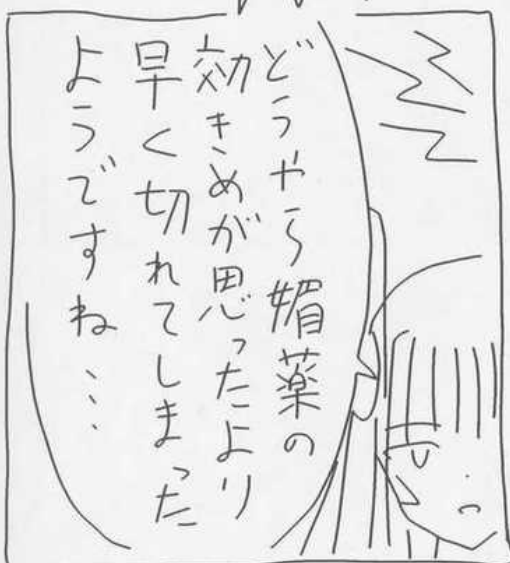 どうやら媚薬の
効きめが思ったより
早く切れてしまった
ようですね…